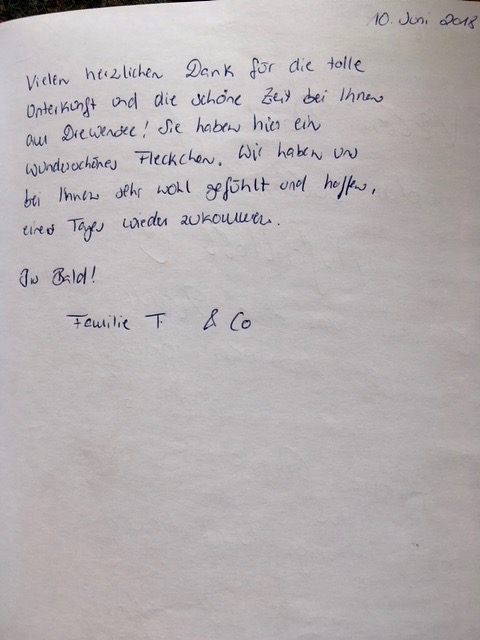 10. Juni 2018
Vielen herzlichen Dank für die tolle
Unterkunft und die schöne Zeit bei Ihnen
am Drewensee! Sie haben hier ein
wunderschönes Fleckchen. Wir haben uns
bei Ihnen sehr wohl gefühlt und hoffen,
eines Tages wieder zukommen.
Bis Bald!
Familie T. & Co